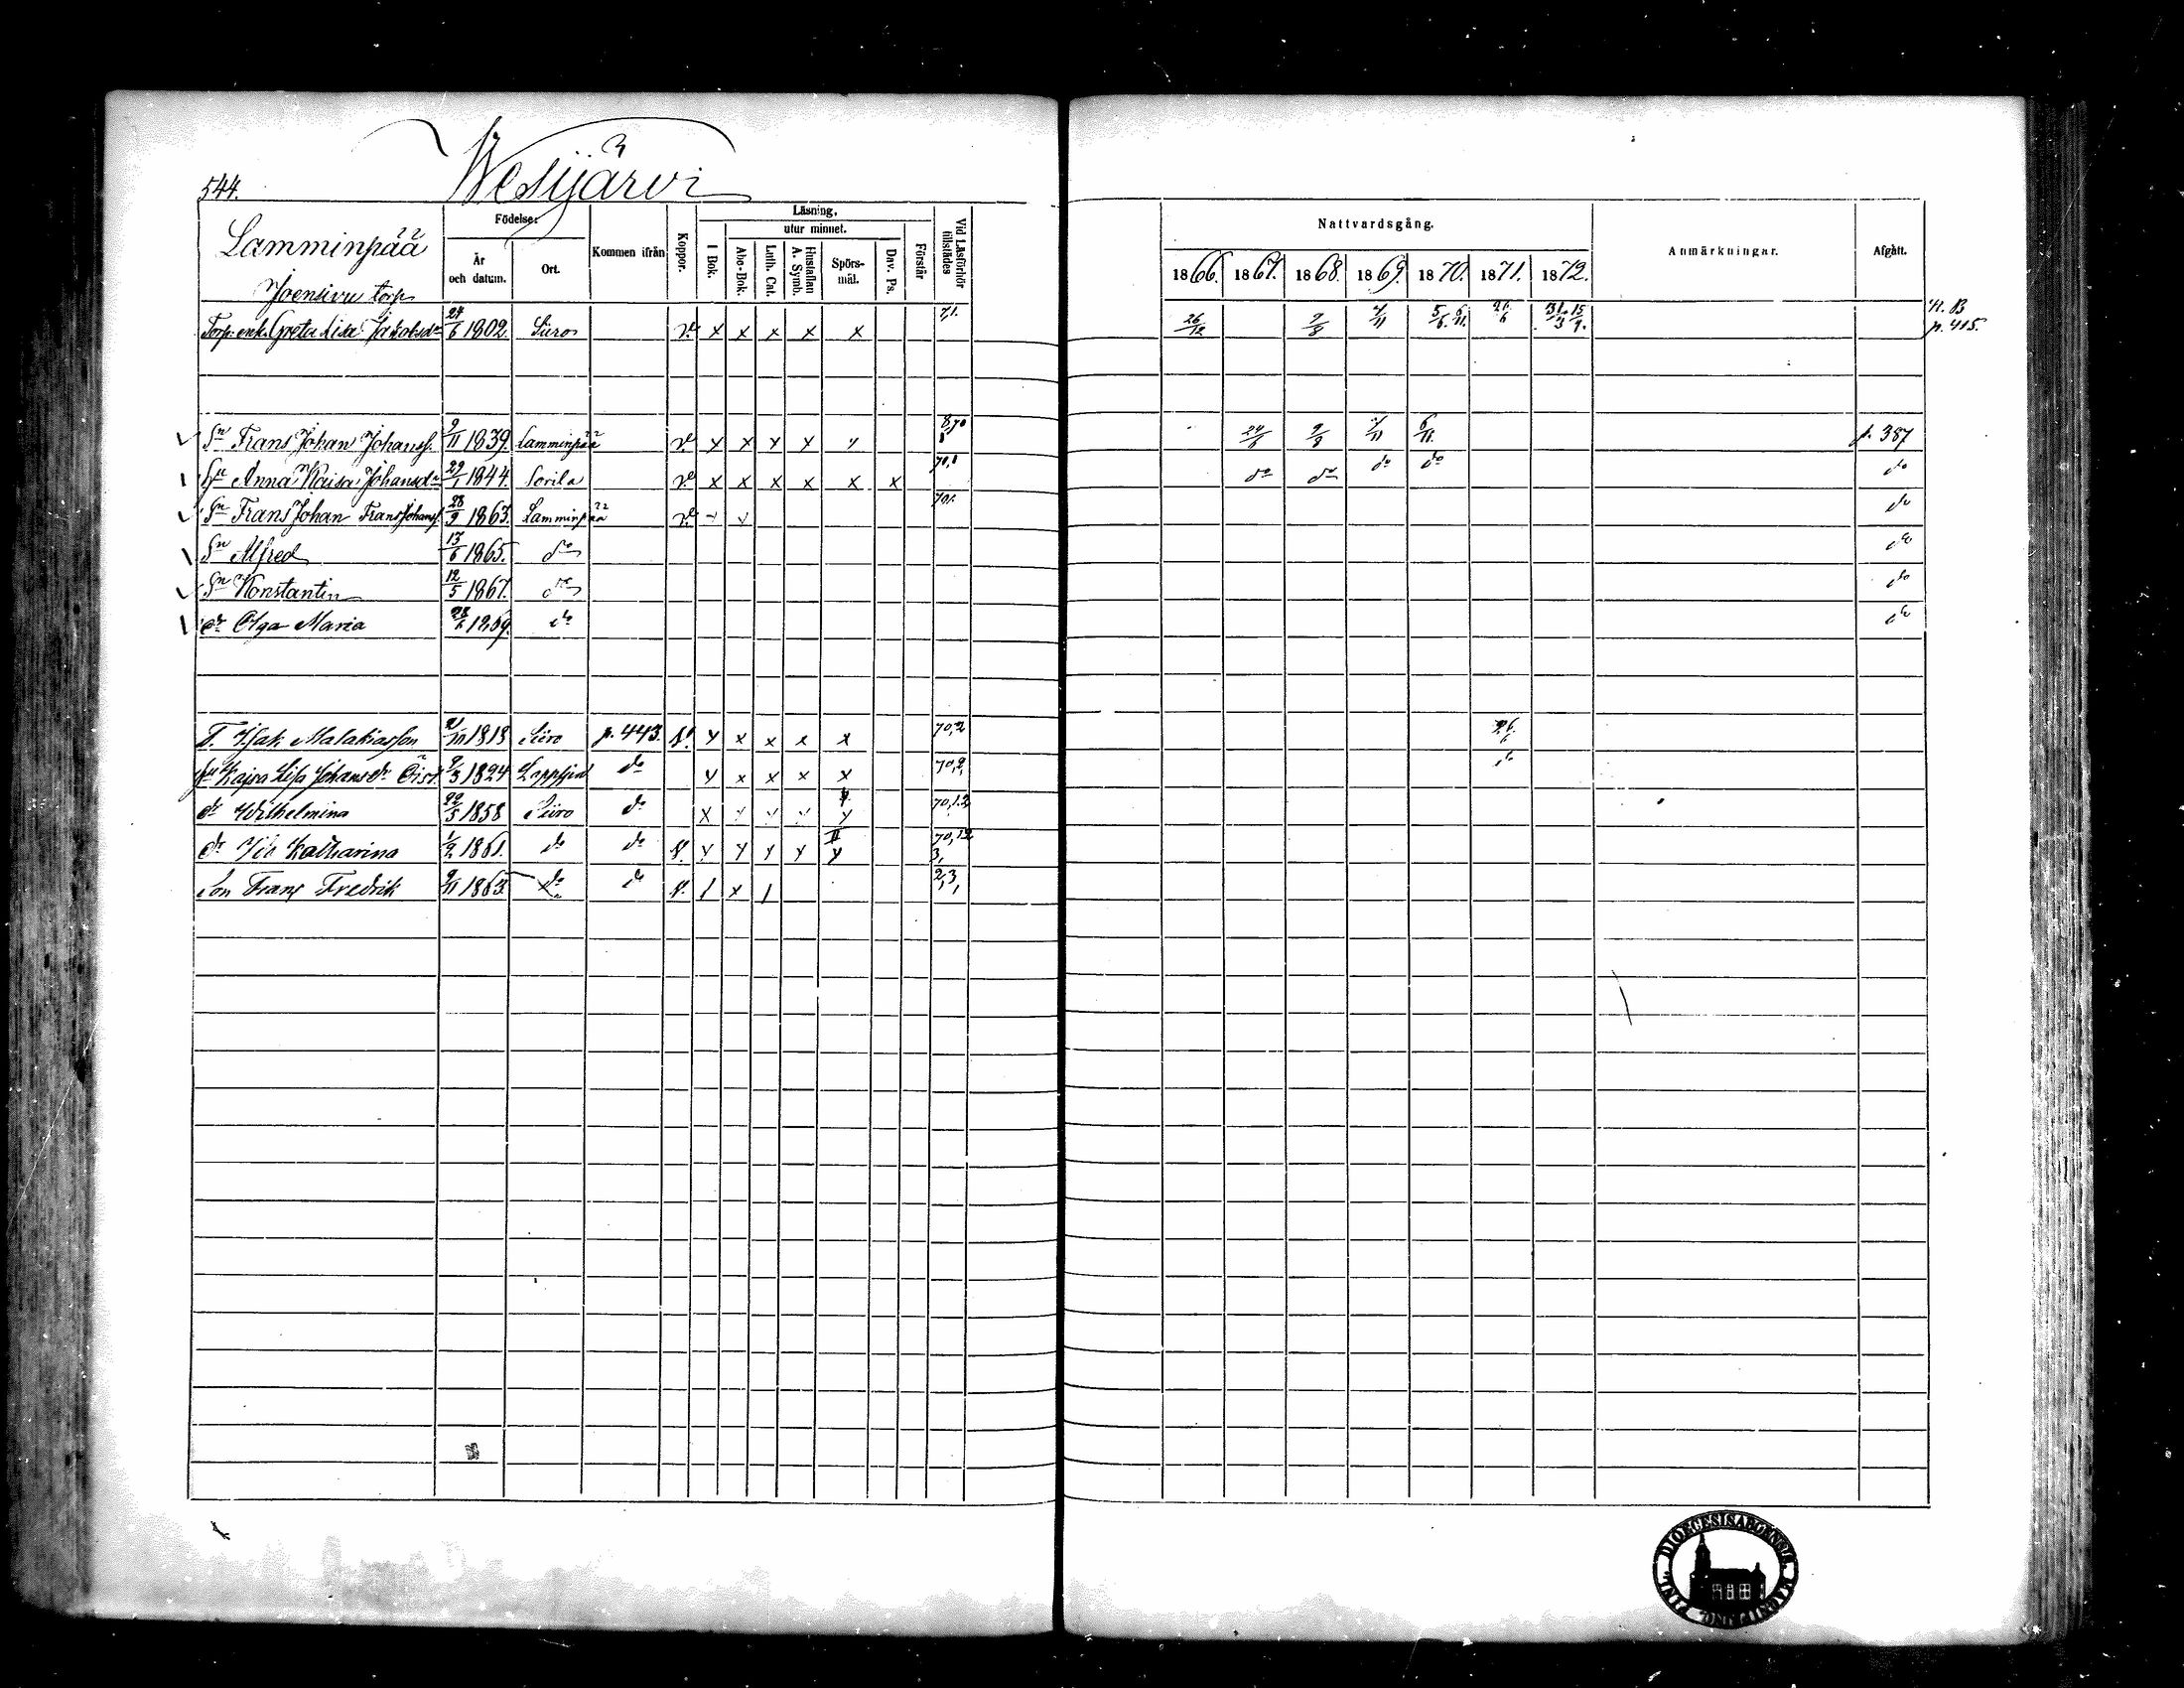 544. Wesijärvi
Lamminpää
Joensivu torp
Födelse:
År och datum.
Ort.
Kommen ifrån
Koppor.
Läsning,
utur minnet.
I Bok.
Abc-Bok.
Luth. Cat.
Hustaflan A. Symb.
Spörs-mål.
Dav. Ps.
Förstår
Vid Läsförhör tillstädes
Nattvardsgång.
1866. 1867. 1868. 1869. 1870. 1871. 1872.
Anmärkningar.
Afgått.
Torp. enk. Greta Lisa Jakobsdr 24/6 1802. Siuro v. x x x x x 71. 26/12 9/8 7/11 5/6. 6/11. 26/6 31/3 15/9. N. B p. 415.
Sn Frans Johan Johanss. 9/11 1839. Lamminpää v. x x x x x 8,70 24/6 9/8 7/11 6/11. p. 387
Hu Anna Kaisa Johansdr 29/1 1844. Sorila v x x x x x x 70,1 do do do do do
Sn Frans Johan Frans Johans. 28/9 1863. Lamminpää v. x x 70. do
Sn Alfred 13/6 1865. do do
Sn Konstantin 12/5 1867. do do
dr Olga Maria 28/6 1869. do do
T. Isak Malakiasson 21/10 1818 Siuro p. 443. v. x x x x x 70,2 26/6
Hu Kajsa Lisa Johansdr 9/3 1824 do x x x x x 70,2, do
dr Wilhelmina 22/5 1858 Siuro do x x x x x 70,1.2
dr Ida Katharina 1/2 1861. do do v. x x x x II x 70,12 3,
Son Frans Fredrik 9/11 1863. do do v. / x / 2,3,